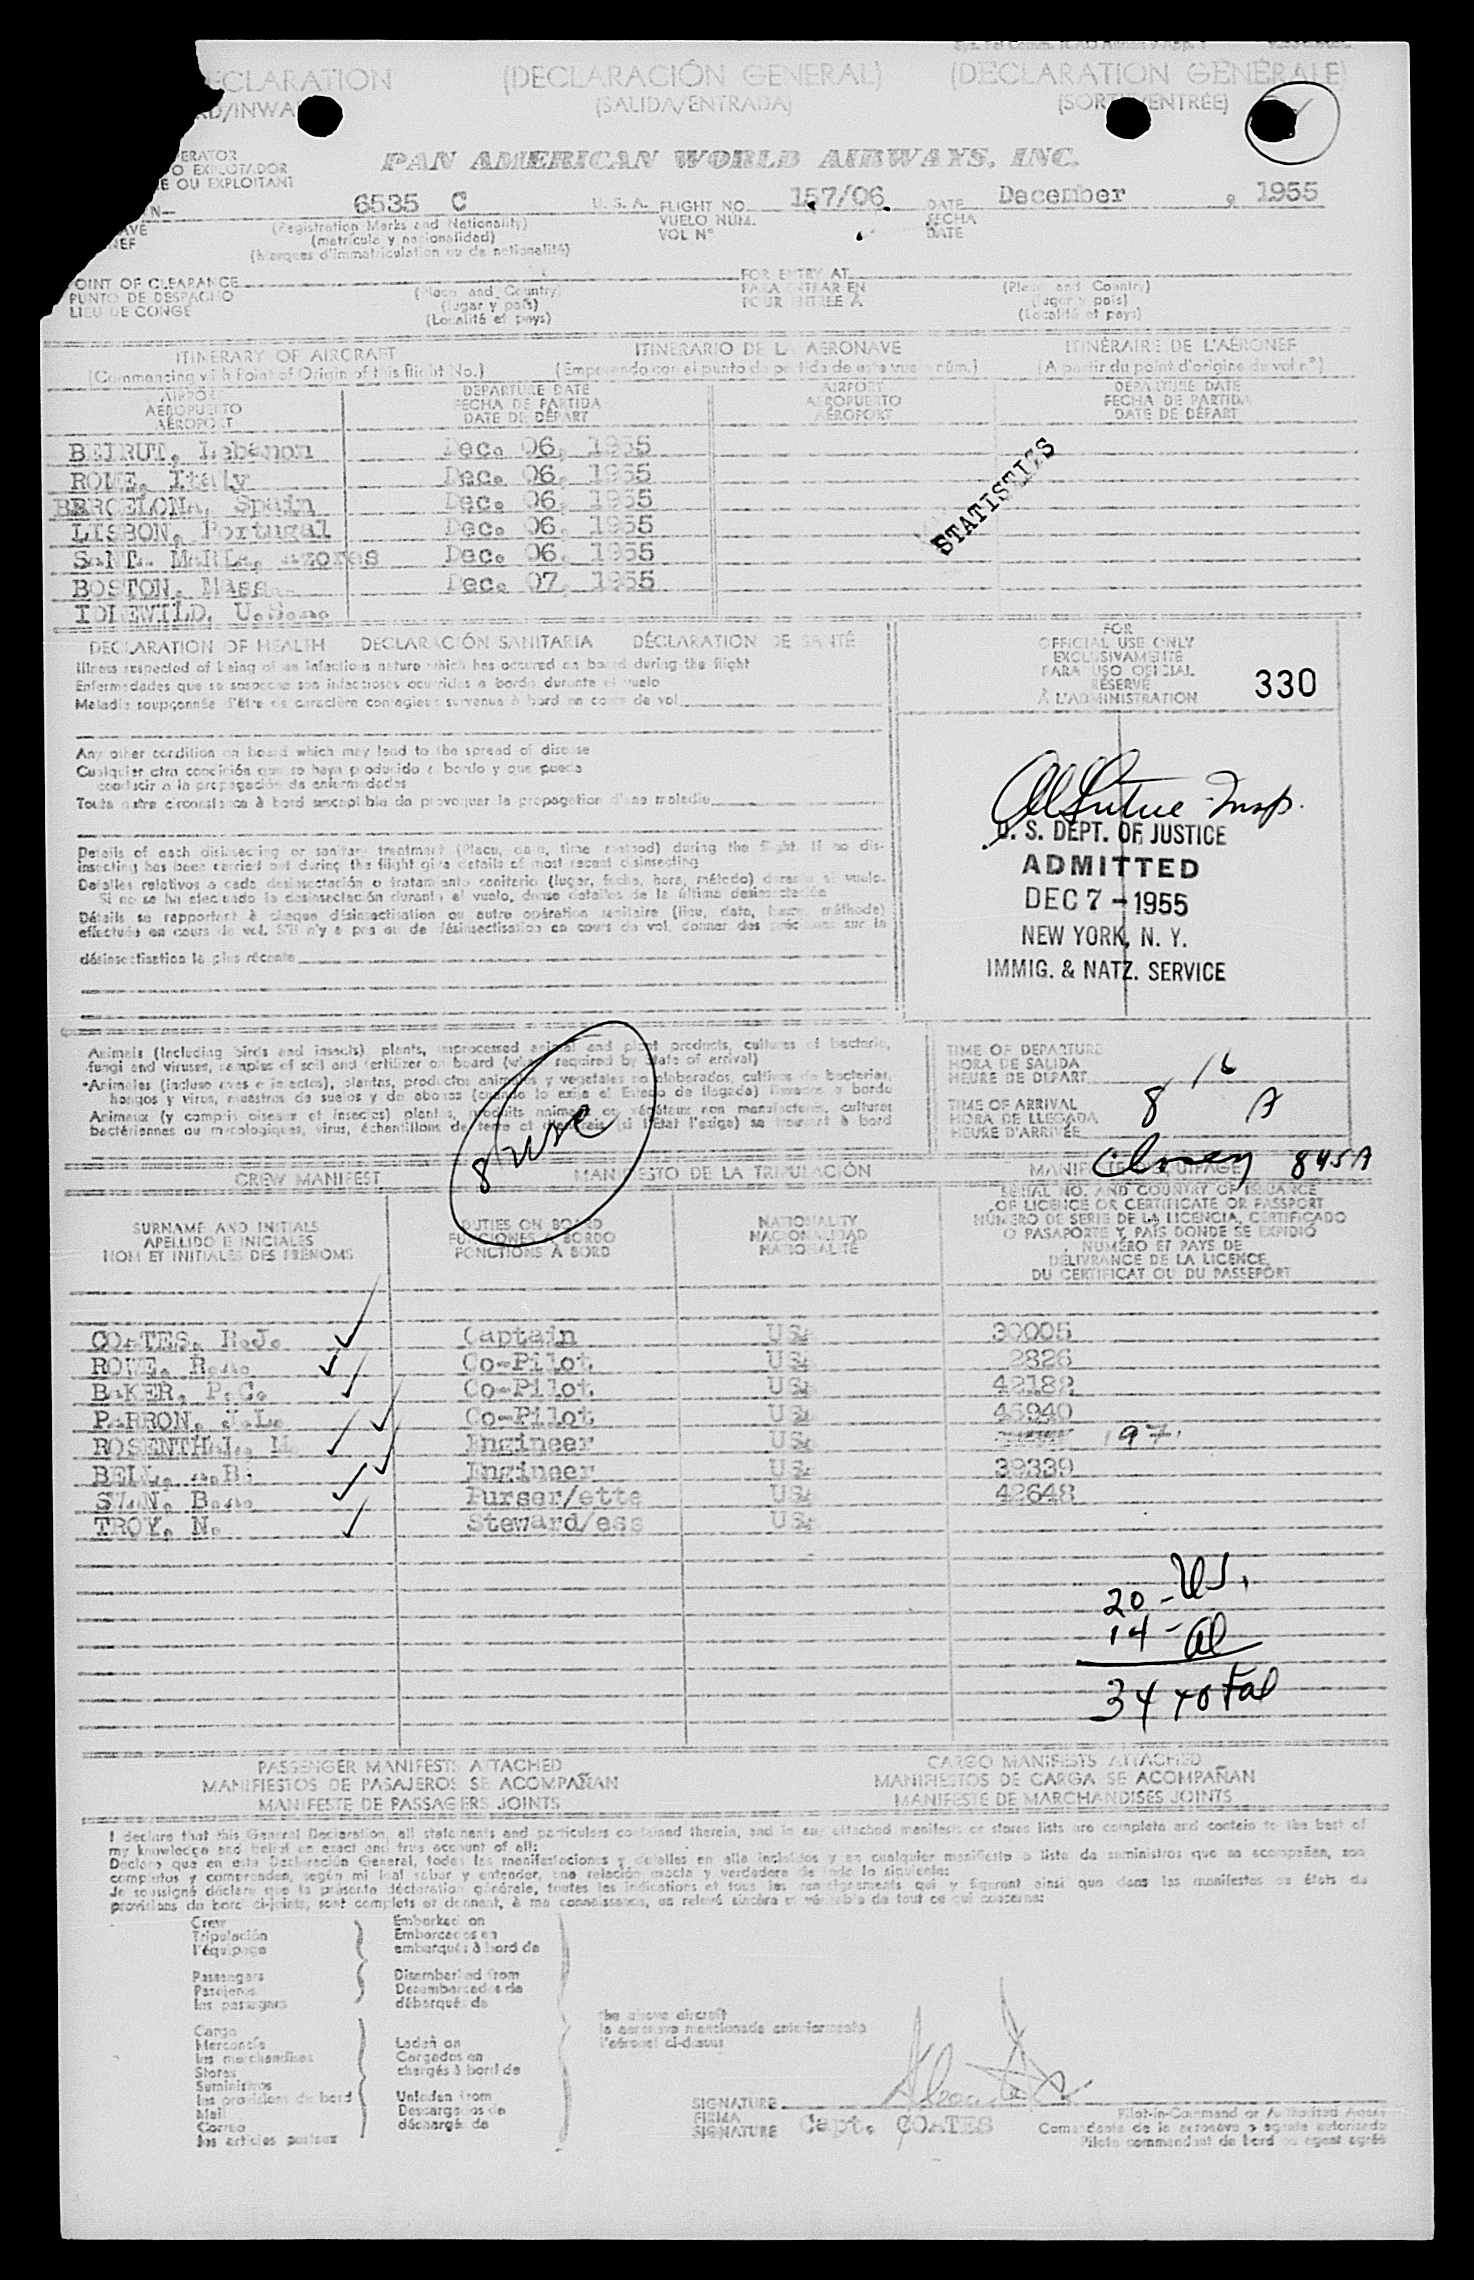 ECLARATION (DECLARACIÓN GENERAL) (DECLARATION GÉNÉRALE)
RD/INWA (SALIDA/ENTRADA) (SORTIE/ENTRÉE)
ERATOR
O EXPLOTADOR
E OU EXPLOITANT
PAN AMERICAN WORLD AIRWAYS, INC.
N 6535 C U. S. A. FLIGHT NO. 157/06. DATE December , 1955
AVE (Registration Marks and Nationality) VUELO NUM. FECHA
NEF (matrícula y nacionalidad) VOL N° DATE
(Marques d'immatriculation ou de nationalité)
OINT OF CLEARANCE FOR ENTRY AT
PUNTO DE DESPACHO (Place and Country) PARA ENTRAR EN (Place and Country)
LIEU DE CONGÉ (lugar y país) POUR ENTRÉE À (lugar y país)
(Localité et pays) (Localité et pays)
ITINERARY OF AIRCRAFT ITINERARIO DE LA AERONAVE ITINÉRAIRE DE L'AÉRONEF
(Commencing with Point of Origin of this flight No.) (Empezando con el punto de partida de este vuelo núm.) (A partir du point d'origine du vol n°)
AIRPORT DEPARTURE DATE AIRPORT DEPARTURE DATE
AEROPUERTO FECHA DE PARTIDA AEROPUERTO FECHA DE PARTIDA
AÉROPORT DATE DE DÉPART AÉROPORT DATE DE DÉPART
BEIRUT, Lebanon Dec. 06, 1955
ROME, Italy Dec. 06, 1955
BARCELONA, Spain Dec. 06, 1955
LISBON, Portugal Dec. 06, 1955
SANTA MARIA, Azores Dec. 06, 1955
BOSTON, Mass. Dec. 07, 1955
IDLEWILD, U.S.A.
STATISTICS
DECLARATION OF HEALTH DECLARACIÓN SANITARIA DÉCLARATION DE SANTÉ
Illness suspected of being of an infectious nature which has occured on board during the flight
Enfermedades que se sospeche son infecciosas ocurridas a bordo durante el vuelo
Maladie soupçonnée d'être de caractère contagieux survenue à bord en cours de vol
FOR
OFFICIAL USE ONLY
EXCLUSIVAMENTE
PARA USO OFICIAL
RÉSERVÉ
À L'ADMINISTRATION
330
Any other condition on board which may lead to the spread of disease
Cualquier otra condición que se haya producido a bordo y que pueda
conducir a la propagación de enfermedades
Toute autre circonstance à bord susceptible de provoquer la propagation d'une maladie
Insp.
U. S. DEPT. OF JUSTICE
ADMITTED
DEC 7 - 1955
NEW YORK, N. Y.
IMMIG. & NATZ. SERVICE
Details of each disinsecting or sanitary treatment (Place, date, time method) during the flight. If no dis-
insecting has been carried out during the flight give details of most recent disinsecting
Detalles relativos a cada desinsectación o tratamiento sanitario (lugar, fecha, hora, método) durante el vuelo.
Si no se ha efectuado la desinsectación durante el vuelo, dense detalles de la última desinsectación
Détails se rapportant à chaque désinsectisation ou autre opération sanitaire (lieu, date, heure, méthode)
effectuée en cours de vol. S'il n'y a pas eu de désinsectisation en cours de vol, donner des précisions sur la
désinsectisation la plus récente
Animals (Including birds and insects) plants, unprocessed animal and plant products, cultures of bacteria,
fungi and viruses, samples of soil and fertilizer on board (when required by State of arrival)
Animales (incluso aves e insectos), plantas, productos animales y vegetales no elaborados, cultivos de bacterias,
hongos y virus, muestras de suelos y de abonos (cuando lo exija el Estado de llegada) llevados a bordo
Animaux (y compris oiseaux et insectes) plantes, produits animaux ou végétaux non manufacturés, cultures
bactériennes ou mycologiques, virus, échantillons de terre et d'engrais (si l'État l'exige) se trouvant à bord
TIME OF DEPARTURE
HORA DE SALIDA
HEURE DE DÉPART
TIME OF ARRIVAL 8 16 A
HORA DE LLEGADA
HEURE D'ARRIVÉE
845A
CREW MANIFEST MANIFIESTO DE LA TRIPULACIÓN MANIFESTE D'ÉQUIPAGE
SURNAME AND INITIALS
APELLIDO E INICIALES
NOM ET INITIALES DES PRÉNOMS
DUTIES ON BOARD
FUNCIONES A BORDO
FONCTIONS À BORD
NATIONALITY
NACIONALIDAD
NATIONALITÉ
SERIAL NO. AND COUNTRY OF ISSUANCE
OF LICENCE OR CERTIFICATE OR PASSPORT
NÚMERO DE SERIE DE LA LICENCIA, CERTIFICADO
O PASAPORTE Y PAÍS DONDE SE EXPIDIÓ
NUMÉRO ET PAYS DE
DÉLIVRANCE DE LA LICENCE,
DU CERTIFICAT OU DU PASSEPORT
COATES, R.J. Captain USA 30005
ROWE, R.A. Co-Pilot USA 2826
BAKER, P.C. Co-Pilot USA 42182
PARRON, J.L. Co-Pilot USA 45940
ROSENTHAL, M. Engineer USA 197
BELL, A.B. Engineer USA 39339
SWAN, B.A. Purser/ette USA 42648
TROY, N. Steward/ess USA
20 - US.
14 - al
34 total
PASSENGER MANIFESTS ATTACHED CARGO MANIFESTS ATTACHED
MANIFIESTOS DE PASAJEROS SE ACOMPAÑAN MANIFIESTOS DE CARGA SE ACOMPAÑAN
MANIFESTE DE PASSAGERS JOINTS MANIFESTE DE MARCHANDISES JOINTS
I declare that this General Declaration, all statements and particulars contained therein, and in any attached manifests or stores lists are complete and contain to the best of
my knowledge and belief an exact and true account of all:
Declaro que en esta Declaración General, todas las manifestaciones y detalles en ella incluidos y en cualquier manifiesto o lista de suministros que se acompañan, son
completos y comprenden, según mi leal saber y entender, una relación exacta y verdadera de todo lo siguiente:
Je soussigné déclare que la présente déclaration générale, toutes les indications et tous les renseignements qui y figurent ainsi que dans les manifestes ou états de
provisions de bord ci-joints, sont complets et donnent, à ma connaissance, un relevé sincère et véritable de tout ce qui concerne:
Crew Embarked on
Tripulación Embarcados en
l'équipage embarqués à bord de
Passengers Disembarked from
Pasajeros Desembarcados de
les passagers débarqués de
the above aircraft
la aeronave mencionada anteriormente
l'aéronef ci-dessus
Cargo
Mercancía Laden on
les marchandises Cargados en
Stores chargés à bord de
Suministros
les provisions de bord Unladen from
Mail Descargados de
Correo déchargés de
les articles postaux
SIGNATURE
FIRMA Capt. COATES
SIGNATURE
Pilot-in-Command or Authorized Agent
Comandante de la aeronave o agente autorizado
Pilote commandant de bord ou agent agréé